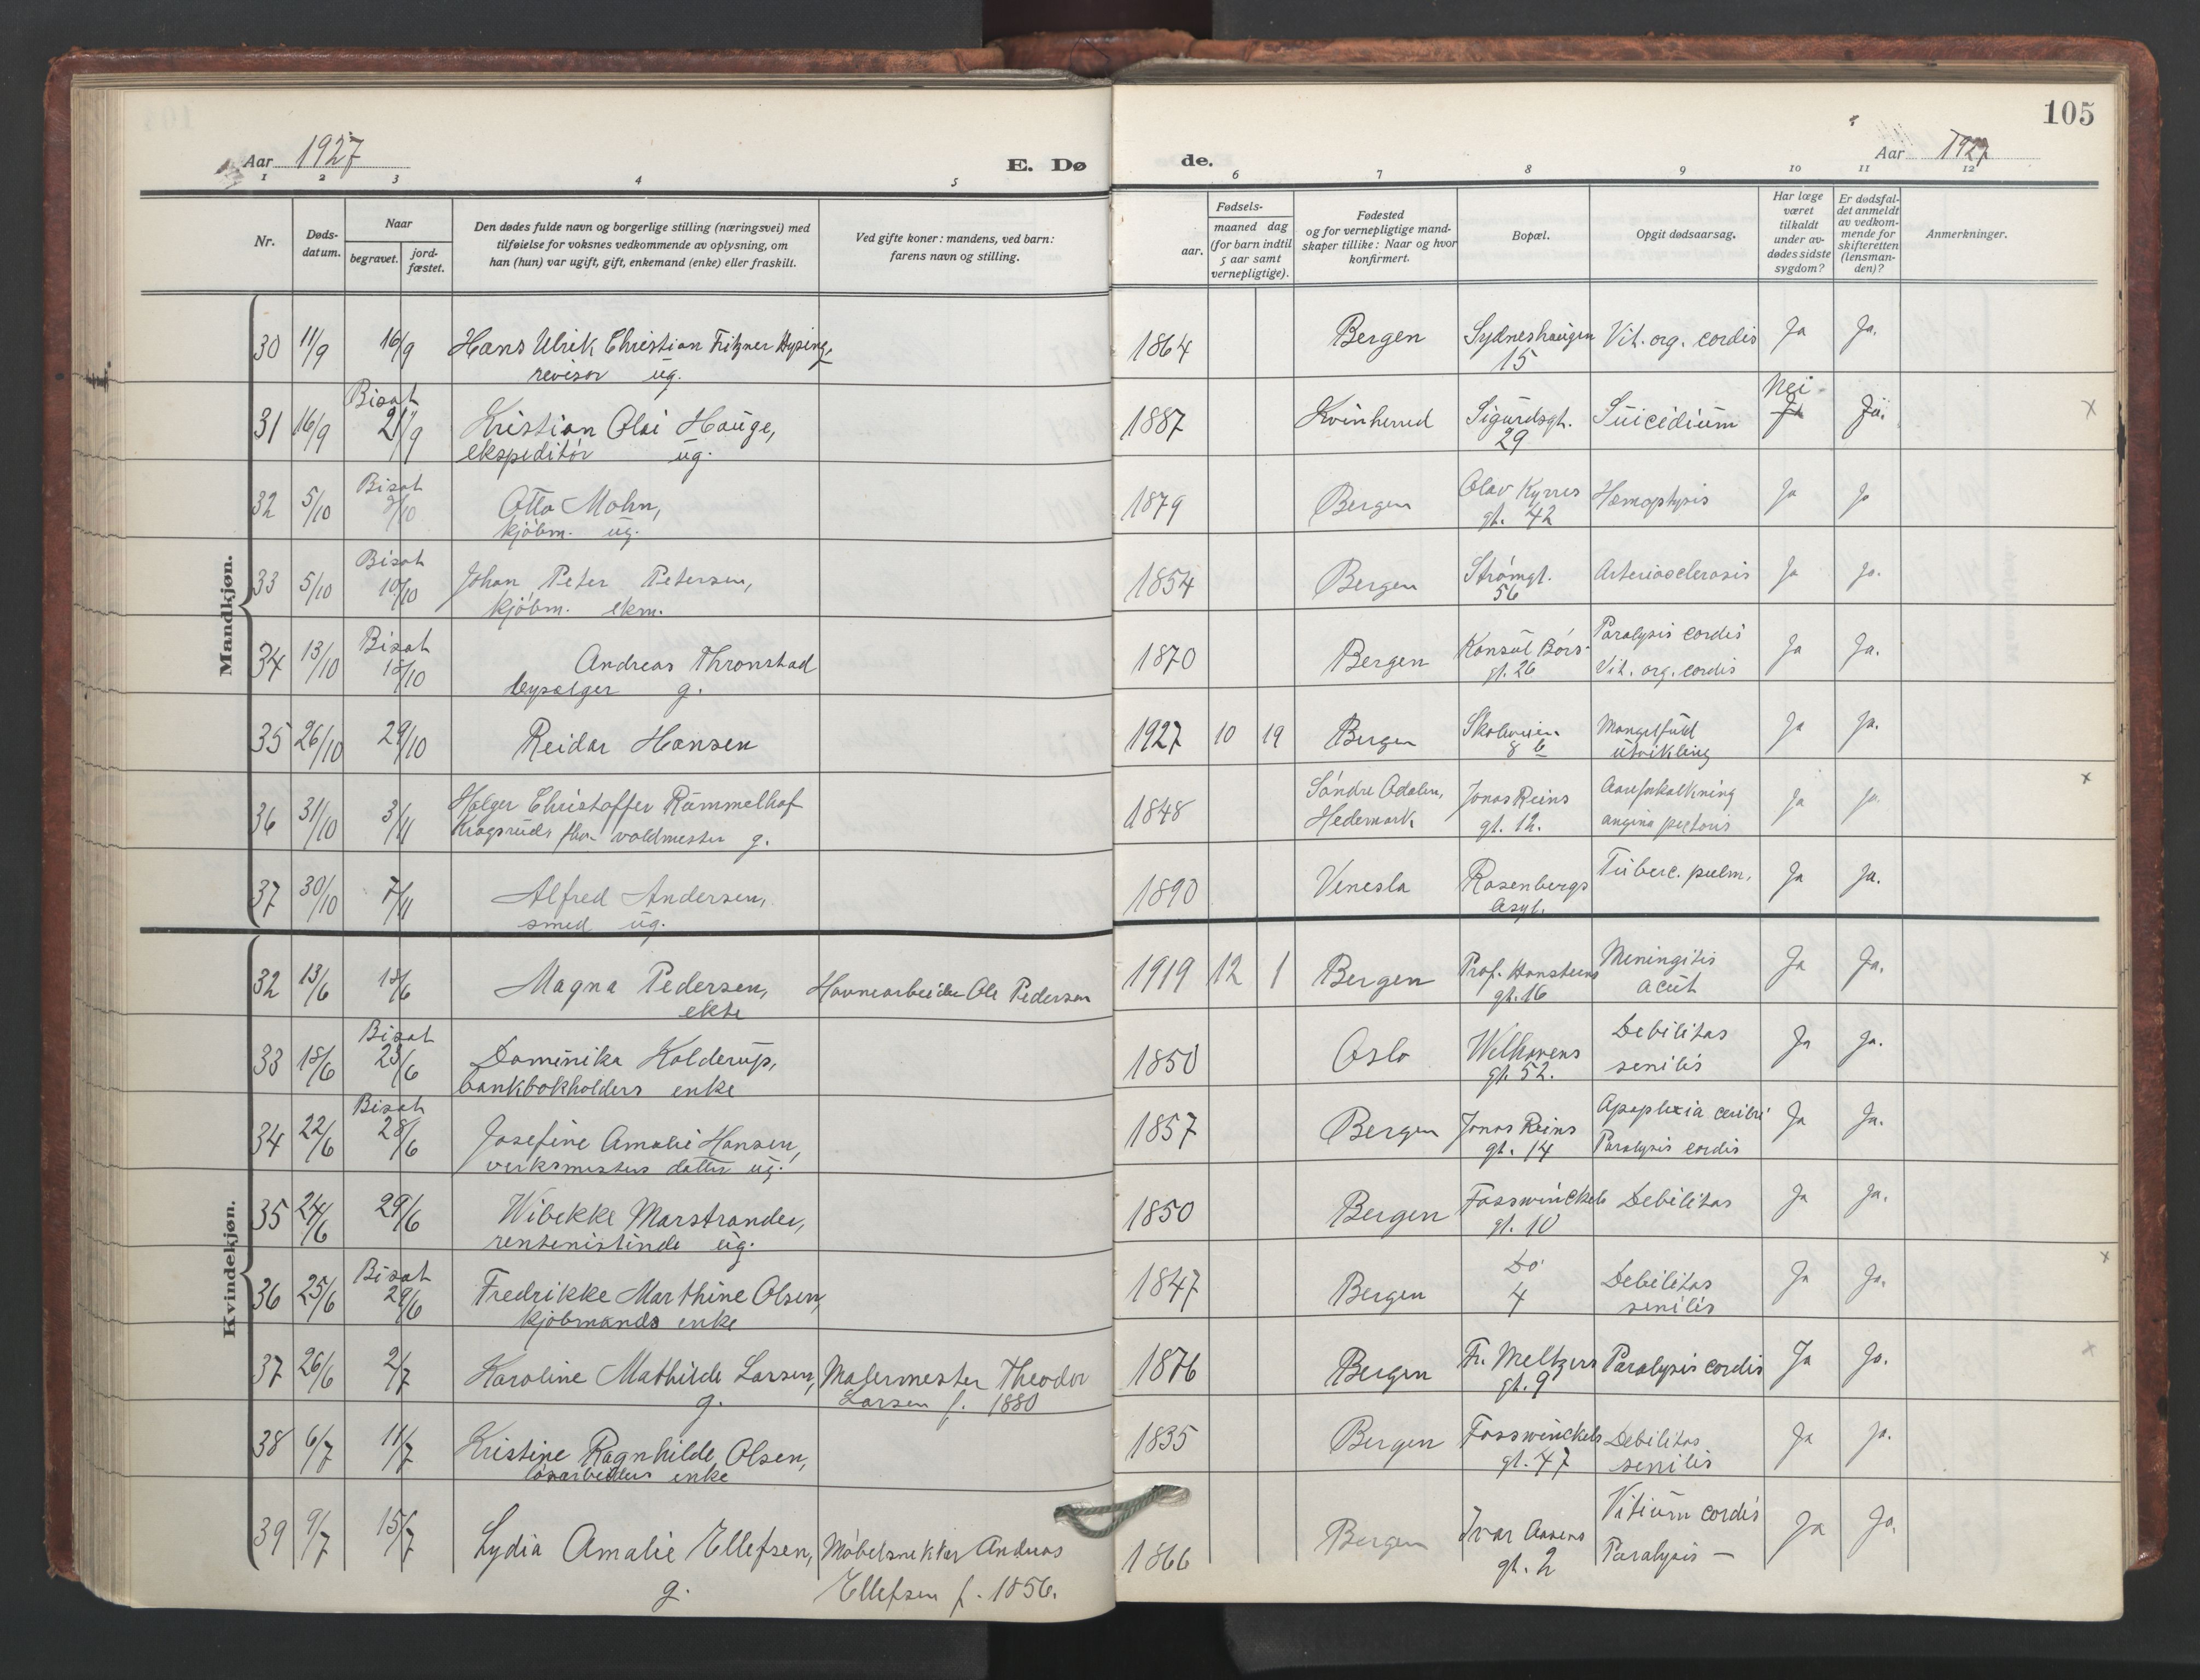 105
Aar 1927
E. Dø
de.
Aar 1927
1 2 3 4 5 6 7 8 9 10 11 12
Nr.
Døds-
datum.
Naar
begravet.
jord-
fæstet.
Den dødes fulde navn og borgerlige stilling (næringsvei) med
tilføielse for voksnes vedkommende av oplysning, om
han (hun) var ugift, gift, enkemand (enke) eller fraskilt.
Ved gifte koner: mandens, ved barn:
farens navn og stilling.
Fødsels-
aar.
maaned dag
(for barn indtil
5 aar samt
vernepligtige).
Fødested
og for vernepligtige mand-
skaper tillike: Naar og hvor
konfirmert.
Bopæl.
Opgit dødsaarsag.
Har læge
været
tilkaldt
under av-
dødes sidste
sygdom?
Er dødsfal-
det anmeldt
av vedkom-
mende for
skifteretten
(lensman-
den)?
Anmerkninger.
Mandkjøn.
30 11/9 16/9 Hans Ulrik Christian Fritzner 1864 Bergen Sydneshaugen Vit. org. cordis Ja Ja.
revisor ug. 15
Bisat Nei
31 16/9 21/9 Kristian Olai Hauge, 1887 Kvinherred Sigurdsgt. Suicidium Ja Ja. x
ekspeditör ug. 29
Bisat
32 5/10 /10 Otto Mohn, 1879 Bergen Olav Kyrres Hæmoptysis Ja Ja
kjöbm. ug. gt. 42
Bisat
33 5/10 10/10 Johan Peter Petersen, 1854 Bergen Strömgt. Arteriosclerosis Ja Ja.
kjöbm. ekm. 56
Bisat
34 13/10 18/10 Andreas Thronstad 1870 Bergen Konsul Börs Paralysis cordis Ja Ja.
bysælger g. gt. 26 Vit. org. cordis
35 26/10 29/10 Reidar Hansen 1927 10 19 Bergen Skoleveien Mangelfuld Ja Ja.
8 b utvikling
36 31/10 3/11 Holger Christoffer Rummelhof 1848 Söndre Odalen, Jonas Reins Aareforkalkning Ja Ja. x
Kragsrud, voldmester g. Hedemark gt. 12. angina pectoris
37 30/10 7/11 Alfred Andersen, 1890 Venesla Rosenbergs Tuberc. pulm. Ja Ja.
smed ug. Asyl.
Kvindekjøn.
32 13/6 18/6 Magna Pedersen, Havnearbeider Ole Pedersen 1919 12 1 Bergen Prof. Hansteens Meningitis Ja Ja.
ekte gt. 16 acut
Bisat
33 18/6 23/6 Dominika Kolderup, 1850 Oslo Welhavens Debilitas Ja Ja.
bankbokholders enke gt. 52. senilis
Bisat
34 22/6 28/6 Josefine Amalie Hansen, 1857 Bergen Jonas Reins Apoplexia cerebri Ja Ja.
verksmesters datter ug. gt. 14 Paralysis cordis
35 24/6 29/6 Wibekke Marstrander, 1850 Bergen Fosswinckels Debilitas Ja Ja.
rentenistinde ug. gt. 10
Bisat
36 25/6 29/6 Fredrikke Marthine Olsen, 1847 Bergen Do Debilitas Ja Ja. x
kjöbmands enke 4 senilis
37 26/6 2/7 Karoline Mathilde Larsen, Malermester Theodor 1876 Bergen Fr. Meltzers Paralysis cordis Ja Ja. x
g. Larsen f. 1880 gt. 9
38 6/7 11/7 Kristine Ragnhilde Olsen, 1835 Bergen Fosswinckels Debilitas Ja Ja.
lösarbeiders enke gt. 47 senilis
39 9/7 15/7 Lydia Amalie Ellefsen, Möbelsnekker Andreas 1866 Bergen Ivar Aasens Vitium cordis Ja Ja.
g. Ellefsen f. 1856. gt. 2 Paralysis —